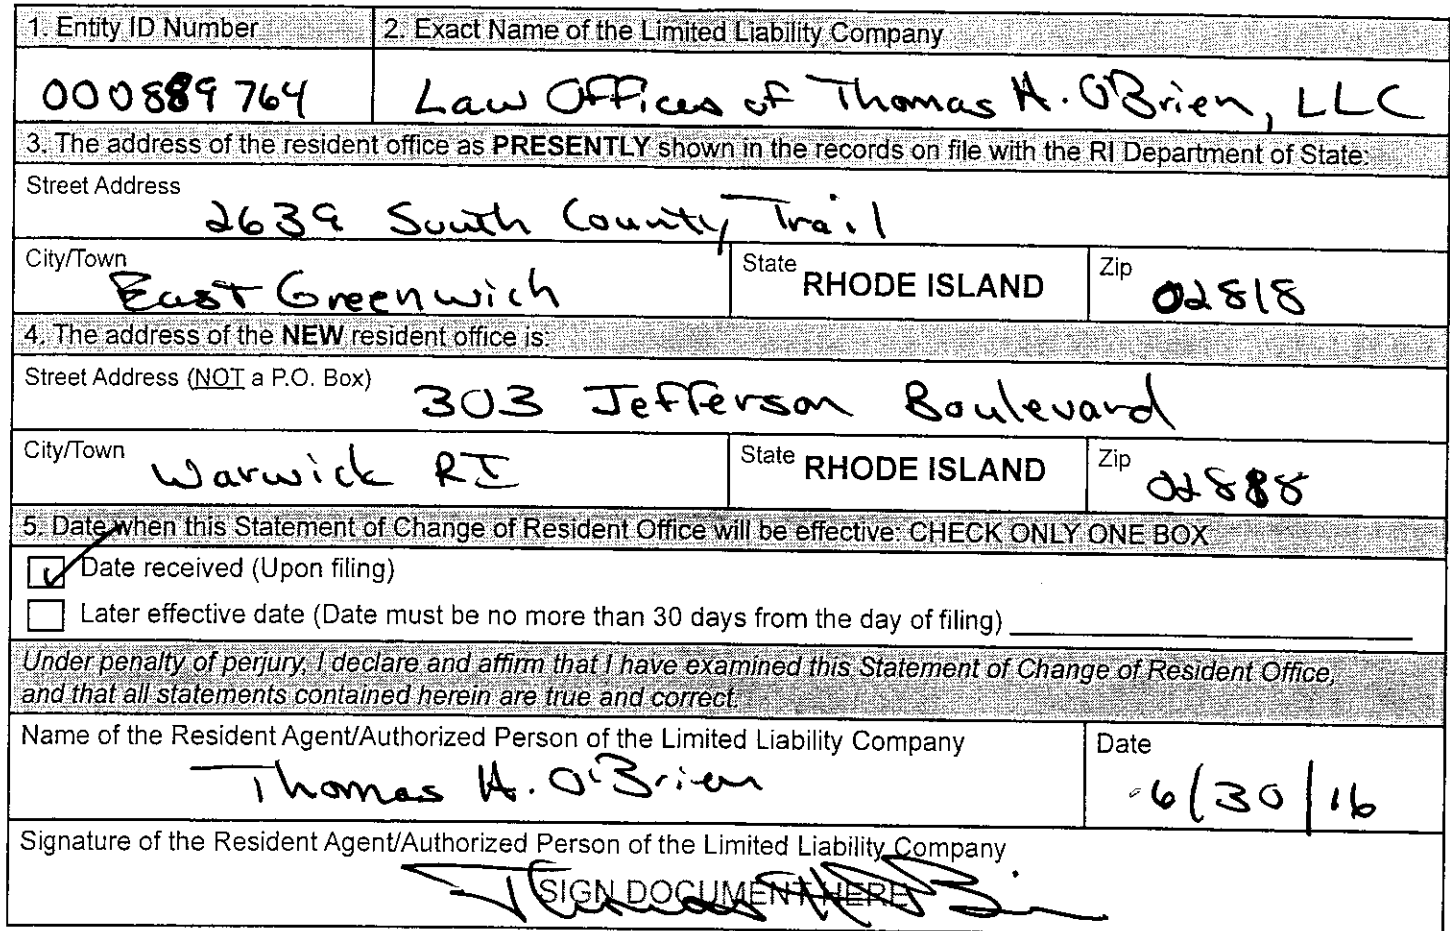 1. Entity ID Number
2. Exact Name of the Limited Liability Company
000889764
Law Offices of Thomas H. O'Brien, LLC
3. The address of the resident office as PRESENTLY shown in the records on file with the RI Department of State:
Street Address
2639 South County Trail
City/Town
East Greenwich
State RHODE ISLAND
Zip 02818
4. The address of the NEW resident office is:
Street Address (NOT a P.O. Box)
303 Jefferson Boulevard
City/Town
Warwick RI
State RHODE ISLAND
Zip 02888
5. Date when this Statement of Change of Resident Office will be effective: CHECK ONLY ONE BOX
Date received (Upon filing)
Later effective date (Date must be no more than 30 days from the day of filing)
Under penalty of perjury, I declare and affirm that I have examined this Statement of Change of Resident Office,
and that all statements contained herein are true and correct.
Name of the Resident Agent/Authorized Person of the Limited Liability Company
Thomas H. O'Brien
Date
6/30/16
Signature of the Resident Agent/Authorized Person of the Limited Liability Company
SIGN DOCUMENT HERE
Thomas H O'Brien